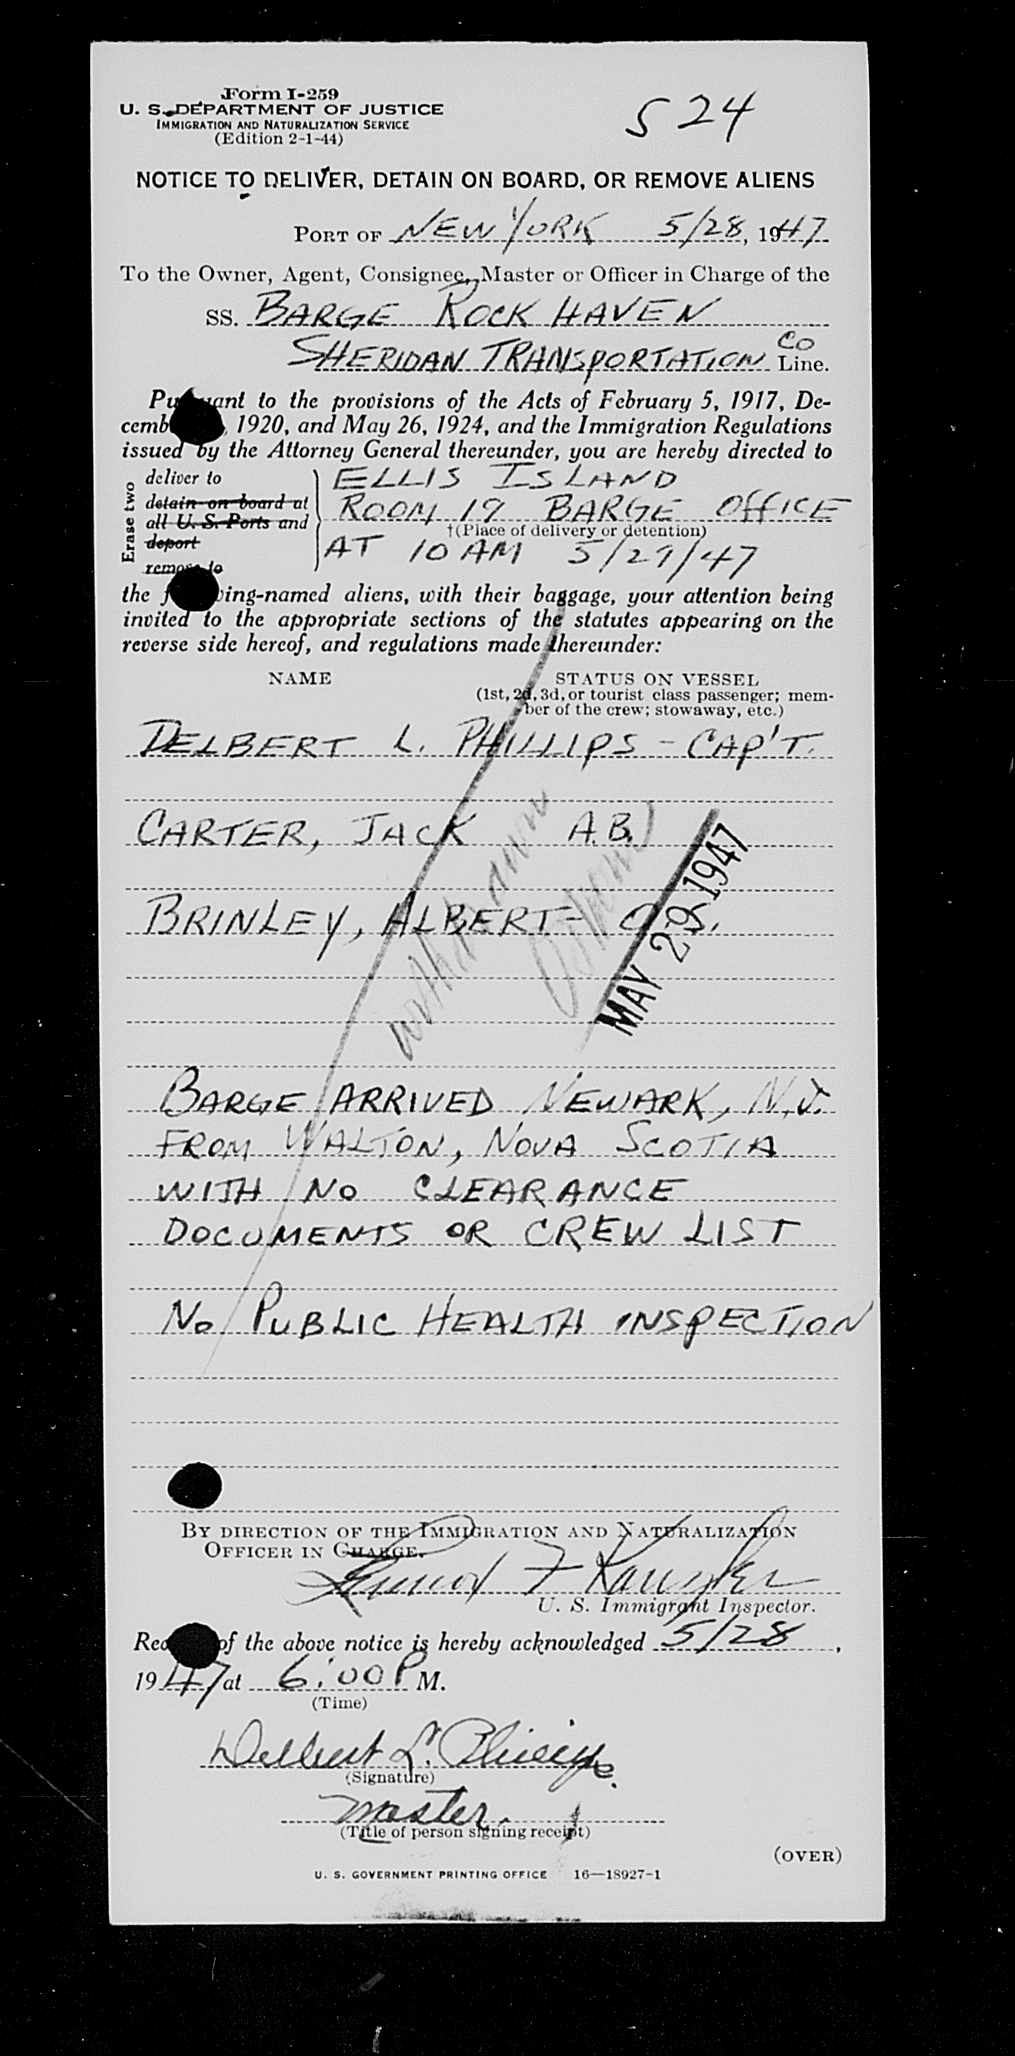 Form I-259
U. S. DEPARTMENT OF JUSTICE
IMMIGRATION AND NATURALIZATION SERVICE
(Edition 2-1-44)
524
NOTICE TO DELIVER, DETAIN ON BOARD, OR REMOVE ALIENS
PORT OF NEW YORK 5/28, 1947
To the Owner, Agent, Consignee, Master or Officer in Charge of the
SS. BARGE ROCK HAVEN
SHERIDAN TRANSPORTATION CO Line.
Pursuant to the provisions of the Acts of February 5, 1917, De-
cemb , 1920, and May 26, 1924, and the Immigration Regulations
issued by the Attorney General thereunder, you are hereby directed to
Erase two
deliver to
detain on board at
all U. S. Ports and
deport
remove to
ELLIS ISLAND
ROOM 19 BARGE OFFICE
†(Place of delivery or detention)
AT 10 AM 5/29/47
the following-named aliens, with their baggage, your attention being
invited to the appropriate sections of the statutes appearing on the
reverse side hereof, and regulations made thereunder:
NAME
STATUS ON VESSEL
(1st, 2d, 3d, or tourist class passenger; mem-
ber of the crew; stowaway, etc.)
DELBERT L. PHILLIPS - CAP'T.
CARTER, JACK A.B.
BRINLEY, ALBERT - O.S.
withdrawn
MAY 29 1947
BARGE ARRIVED NEWARK, N.J.
FROM WALTON, NOVA SCOTIA
WITH NO CLEARANCE
DOCUMENTS OR CREW LIST
NO PUBLIC HEALTH INSPECTION
BY DIRECTION OF THE IMMIGRATION AND NATURALIZATION
OFFICER IN CHARGE.
U. S. Immigrant Inspector.
Receipt of the above notice is hereby acknowledged 5/28,
1947 at 6:00 P M.
(Time)
Delbert L. Phillips
(Signature)
Master.
(Title of person signing receipt)
(OVER)
U. S. GOVERNMENT PRINTING OFFICE 16—18927-1